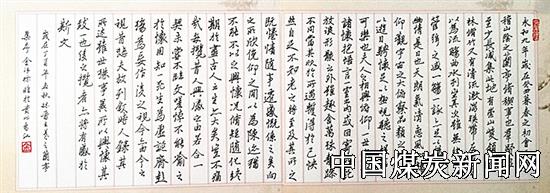 永和九年歲在癸丑暮春之初會
稽山陰之蘭亭脩稧事也羣賢
至少長咸集此地有崇山峻領
林脩竹又有清流激湍暎帶左
以為流觴曲水列坐其次雖無絲
管絃之盛一觴一詠亦足以暢
幽情是日也天朗氣清惠風
仰觀宇宙之大俯察品類之
以遊目騁懷足以極視聽之
可樂也夫人之相與俯仰一世
諸懷抱悟言一室之內或因寄
放浪形骸之外雖趣舍萬殊靜躁
不同當其欣於所遇暫得於己快
然自足不知老之將至及其所之
既惓情隨事遷感慨係之矣向
之所欣俛仰之間以為陳迹猶
不能不以之興懷況脩短隨化終
期於盡古人云死生亦大矣豈不痛
哉每攬昔人興感之由若合一
契未嘗不臨文嗟悼不能喻之
於懷固知一死生為虛誕齊彭
殤為妄作後之視今亦由今之
視昔悲夫故列敘時人錄其
所述雖世殊事異所以興懷其
致一也後之攬者亦將有感於
斯文
中国煤炭新闻网